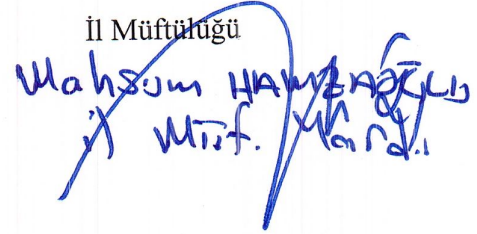 İl Müftülüğü
Mahsum HAMZAOĞLU
İl Müf. Yard.